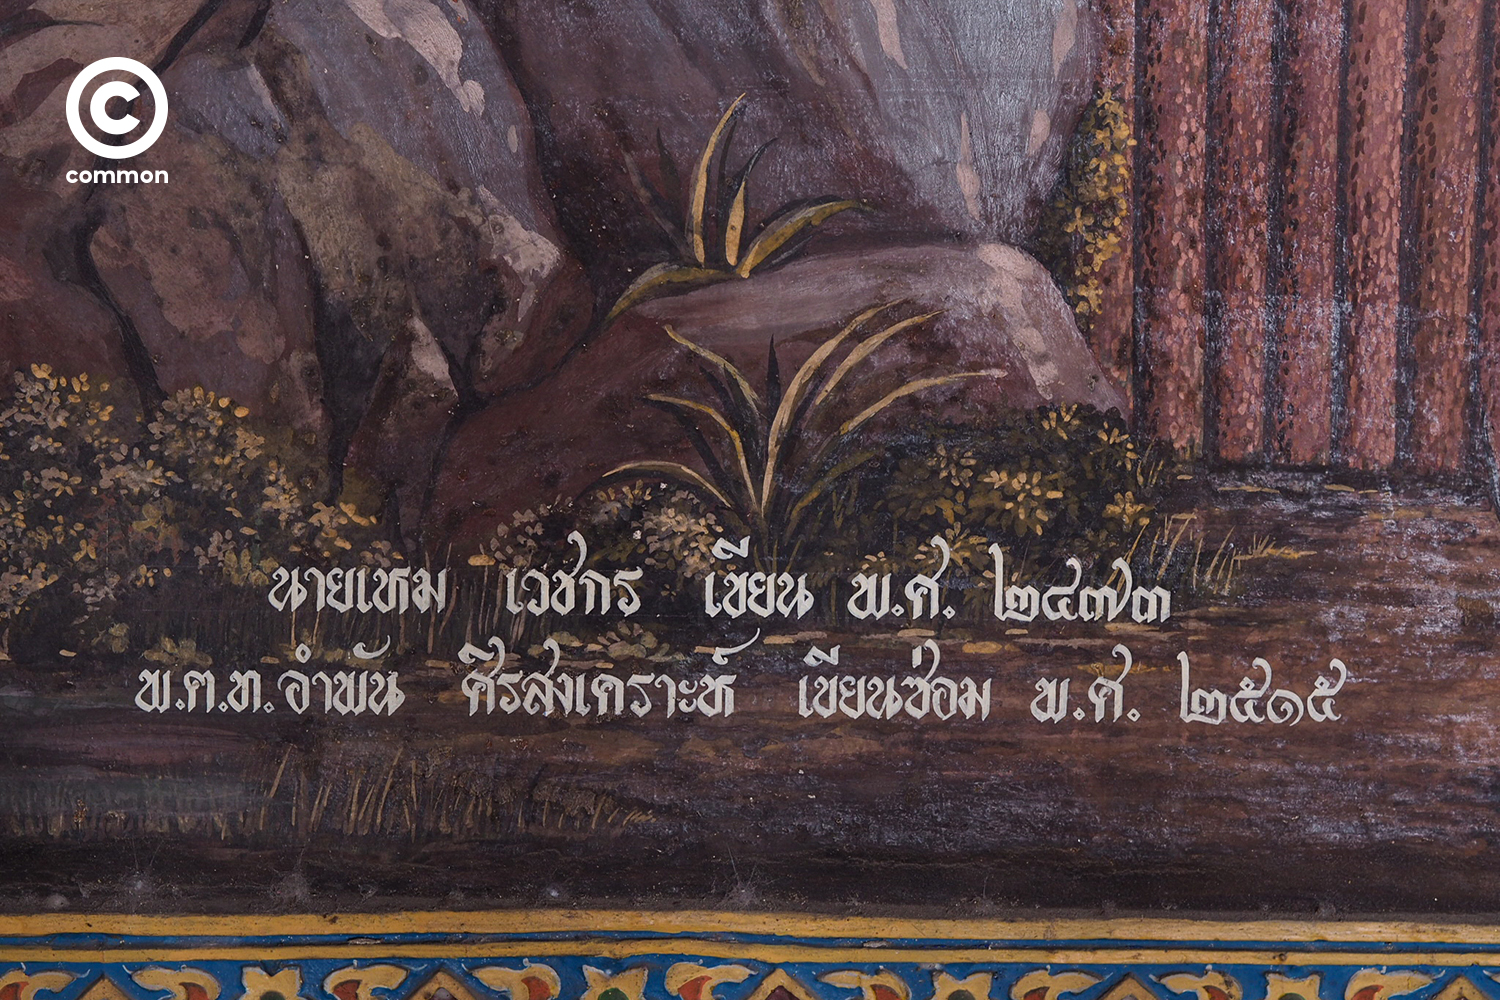 common
นายเหม เวชกร เขียน พ.ศ. ๒๔๗๓
พ.ต.ท.อำพัน ศิริสงเคราะห์ เขียนซ่อม พ.ศ. ๒๕๑๕